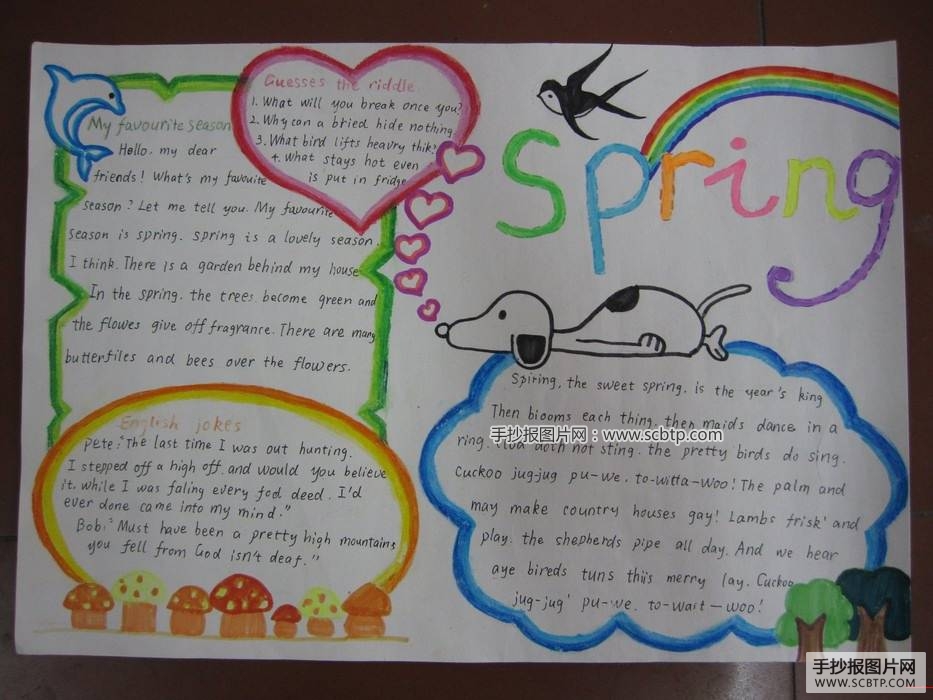 Spring
My favourite season
Hello. my dear
friends! What's my favouite
season? Let me tell you. My favourite
season is spring. spring is a lovely season.
I think. There is a garden behind my house
In the spring. the trees. become green and
the flowes give off fragrance. There are many
butterfiles and bees over the flowers.
Guesses the riddle
1. What will you break once you?
2. Why can a bried hide nothing
3. What bird lifts heavry thik?
4. What stays hot even
is put in fridge
English jokes
Pete: "The last time I was out hunting.
I stepped off a high off. and would you believe
it. while I was faling every fod deed. I'd
ever done came into my mind."
Bob: "Must have been a pretty high mountains
you fell from God isn't deaf."
Spiring, the sweet spring. is the year's king
Then biooms each thing. then maids dance in a
ring. doth not sting. the pretty birds do sing.
Cuckoo jug-jug pu-we. to-witta-woo! The palm and
may make country houses gay! Lambs frisk' and
play. the shepherds pipe all day. And we hear
aye bireds tuns thiis merry lay. Cuckoo
jug-jug' pu-we. to-wait-woo!
手抄报图片网：www.scbtp.com
手抄报图片网
WWW.SCBTP.COM